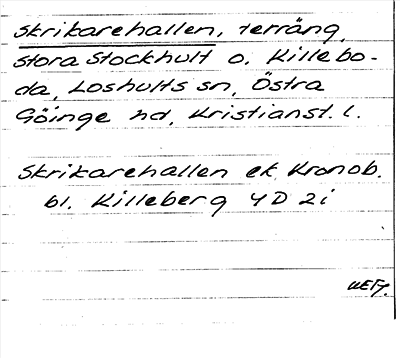 Skrikarehallen, terräng,
Stora Stockhult o. Killebo-
da, Loshults sn, Östra
Göinge hd, Kristianst. l.
Skrikarehallen ek. Kronob.
bl. Killeberg 4D 2i